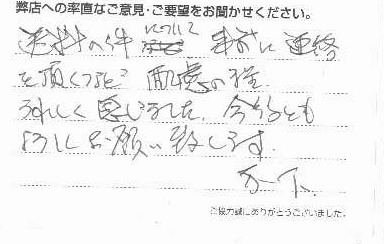 弊店への率直なご意見・ご要望をお聞かせください。
送料の件 について 事前に連絡
を頂くなど 配慮の程
うれしく感じました。今後とも
お願い致します。
ご協力誠にありがとうございました。